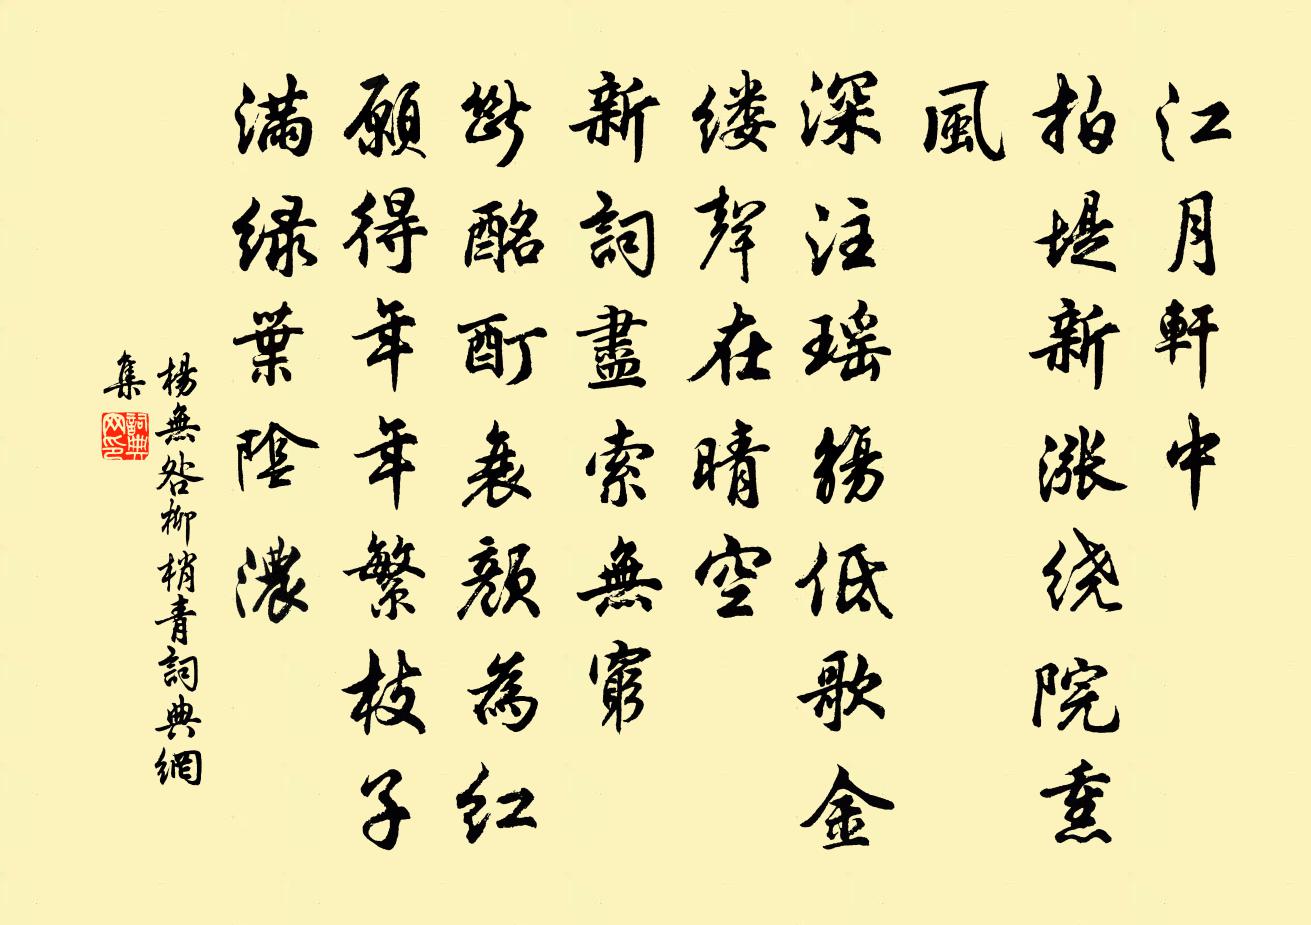 江月軒中
拍堤新漲绕院熏
風
深注瑶觴低歌金
缕聲在晴空
新詞盡索無窮
斷酩酊衰顏為紅
願得年年繁枝子
滿緑葉陰濃
楊無咎柳梢青詞典網
集
詞典网印